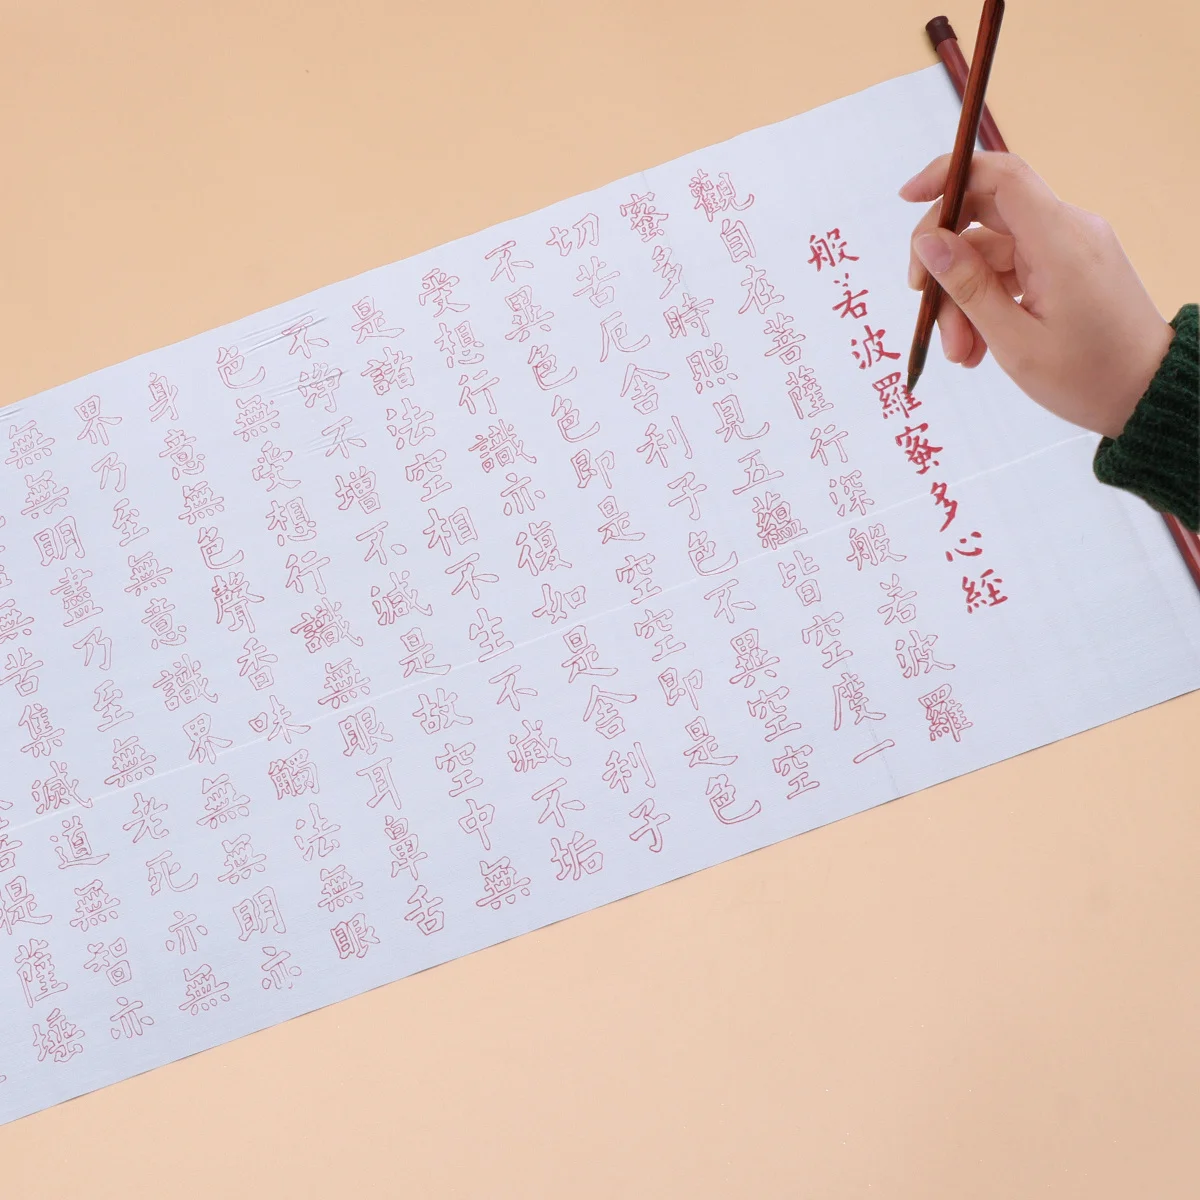 般若波羅蜜多心經
觀自在菩薩行深般若波羅
蜜多時照見五蘊皆空度一
切苦厄舍利子色不異空空
不異色色即是空空即是色
受想行識亦復如是舍利子
是諸法空相不生不滅不垢
不淨不增不減是故空中無
色無受想行識無眼耳鼻舌
身意無色聲香味觸法無眼
界乃至無意識界無無明亦
無無明盡乃至無老死亦無
無苦集滅道無智亦
提薩埵